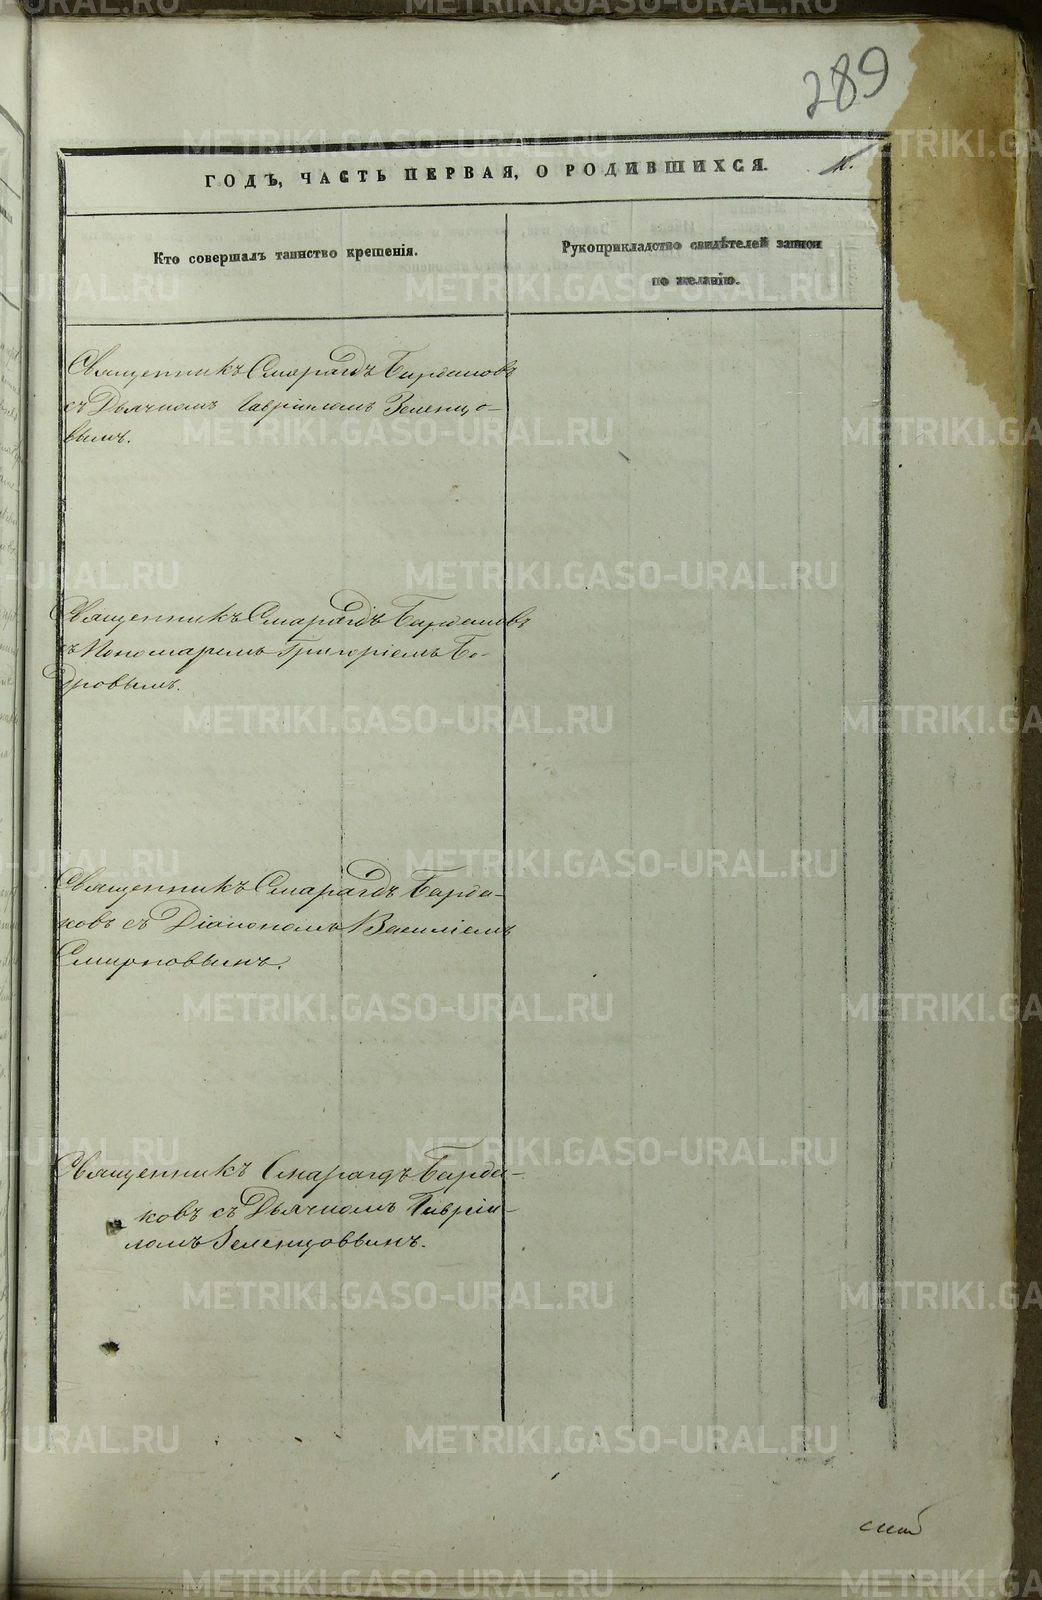 289
ГОДЪ, ЧАСТЬ ПЕРВАЯ, О РОДИВШИХСЯ.
Кто совершалъ таинство крещенія.
Рукоприкладство свидѣтелей записи
по желанію.
Священникъ Смарагдъ Бирдаковъ
съ Дьячкомъ Гавріиломъ Зеленцо-
вымъ.
Священникъ Смарагдъ Бардаковъ
съ Пономаремъ Григоріемъ Бо-
дровымъ.
Священникъ Смарагдъ Барда-
ковъ съ Діакономъ Василіемъ
Смирновымъ.
Священникъ Смарагдъ Барда-
ковъ съ Дьячкомъ Гавріи-
ломъ Зеленцоввымъ.
METRIKI.GASO-URAL.RU